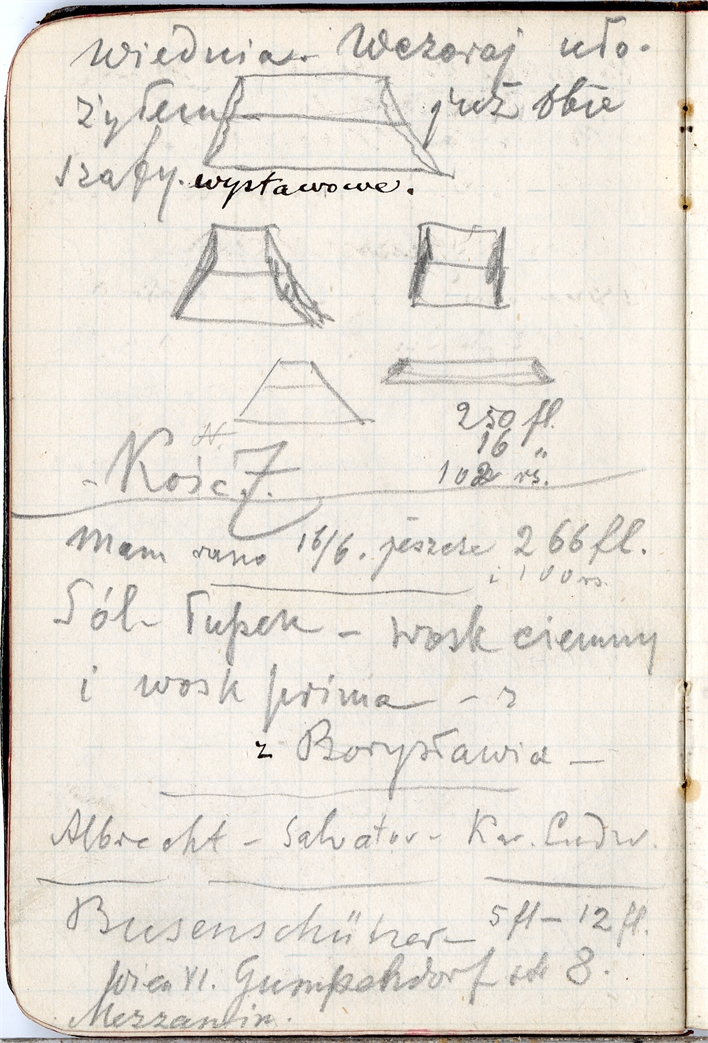 Wiednia. Wczoraj uło-
żyłem już obie
szafy wystawowe.
250 fl.
16 "
102 rs.
Kośc. 7.
Mam rano 16/6. jeszcze 266 fl.
i 100 rs.
Sól – łupek – wosk ciemny
i wosk prima – z
z Borysławia –
Albrecht – Salvator – Kar. Ludw.
Busenschützer – 5 fl – 12 fl.
Wien VI. 8.
Mezzanin.